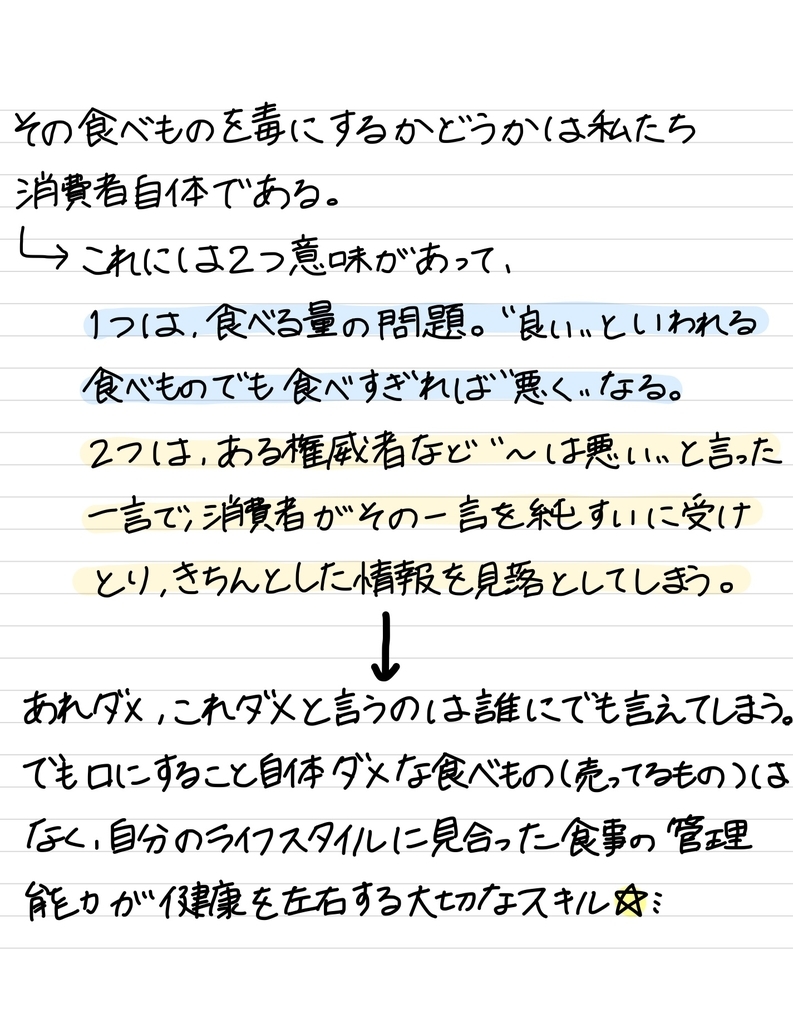 その食べものを毒にするかどうかは私たち
消費者自体である。
↳ これには2つ意味があって、
1つは、食べる量の問題。"良い"といわれる
食べものでも食べすぎれば"悪く"なる。
2つは、ある権威者など"〜は悪い"と言った
一言で、消費者がその一言を純すいに受け
とり、きちんとした情報を見落としてしまう。
↓
あれダメ、これダメと言うのは誰にでも言えてしまう。
でも口にすること自体ダメな食べもの(売ってるもの)は
なく、自分のライフスタイルに見合った食事の管理
能力が健康を左右する大切なスキル☆ミ